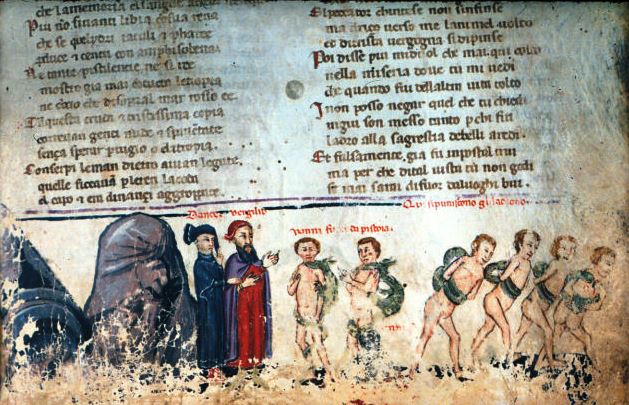 che lamemoria el sangue ancor
Piu no siuanti libia cosua rena
che se quelydri iaculi & pharee
pduce & centri con amphisobena.
Ne tante pistilencie ne si ree
mostro gia mai cotucta letiopia
ne cocio che disopral mar rosso ee.
Traquesta cruda & tristissima copia
correuan genti nude & spauetate
sença sperar ptugio o elitropia.
Conserpi leman dietro auian legate.
quelle ficcaua p leren la coda
el capo & em dinançi aggropate.
El peccator chintese non sinfinse
ma driço verso me lanimo eluolto
et ditrista vergogna sidipinse
Poi disse piu mi duol che mai qui colto
nella miseria doue tu mi uedi
che quando fui dellaltra uita tolto
I non posso negar quel che tu chiedi
ingiu son messo tanto pchi fui
ladro alla sagrestia debelli aredi.
Et falsamente gia fu inposto
ma per che dital uista tu non godi
se mai sarai difuor daluoghi bui.
Dante. vergilio
vanni fu di pistoia.
Qui sipuniscono gli ladroni.